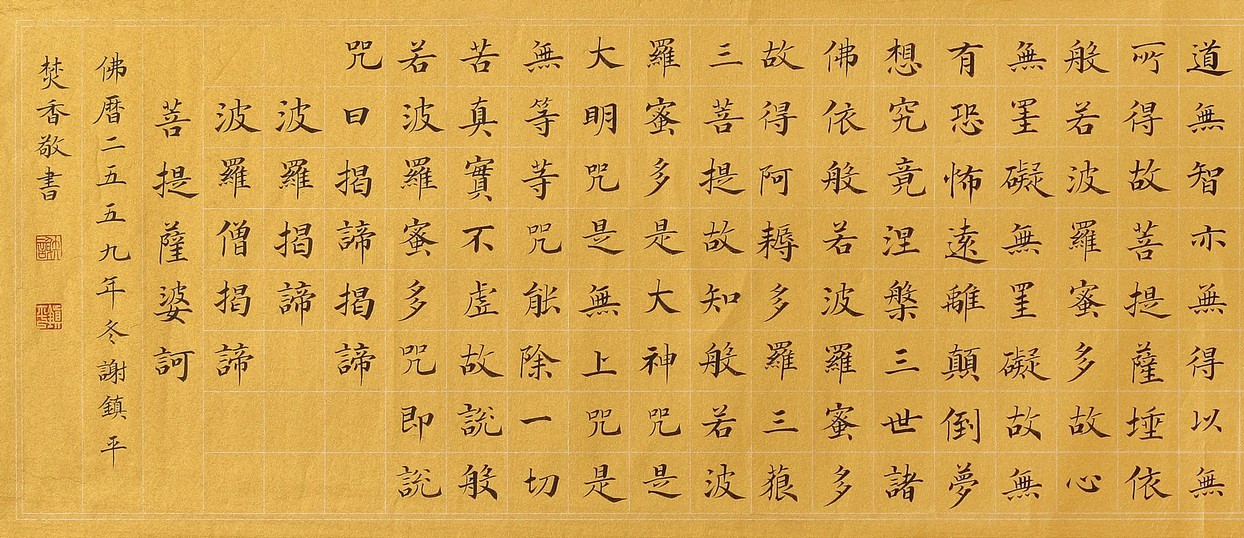 道無智亦無得以無
所得故菩提薩埵依
般若波羅蜜多故心
無罣礙無罣礙故無
有恐怖遠離顛倒夢
想究竟涅槃三世諸
佛依般若波羅蜜多
故得阿耨多羅三藐
三菩提故知般若波
羅蜜多是大神咒是
大明咒是無上咒是
無等等咒能除一切
苦真實不虛故說般
若波羅蜜多咒即說
咒曰揭諦揭諦
波羅揭諦
波羅僧揭諦
菩提薩婆訶
佛暦二五五九年冬謝鎮平
焚香敬書